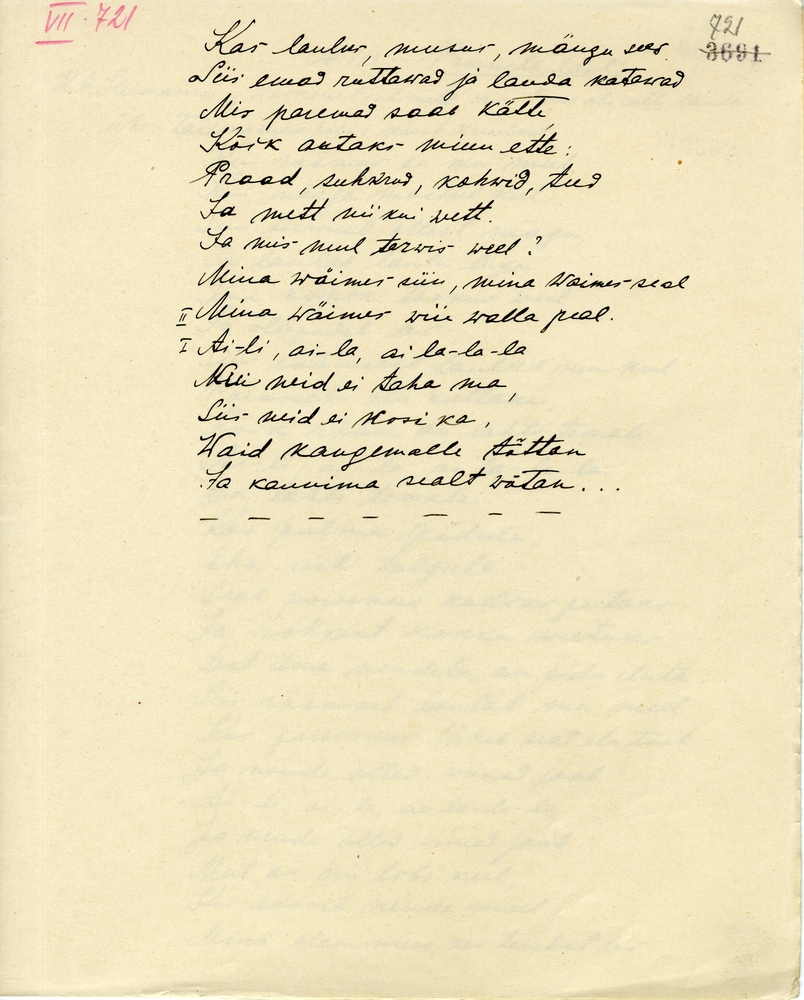 VII · 721
721
3691
Kas laulus, musus, mängu sees
Siis emad ruttawad ja lauda katawad
Mis paremad saab kätte,
Kõik autaks minu ette:
Praad, suhkrud, kohwid, teed
Ja mett nii kui wett.
Ja mis mul tarwis weel?
Mina wäimes siin, mina wäimes seal
II Mina wäimes wiie walla peal.
I Ai-li, ai-la, ai la-la-la
neid ei taha ma,
Siis neid ei kosi ka,
Waid kangemalle tõttan
Ja kaunima sealt wõtan...